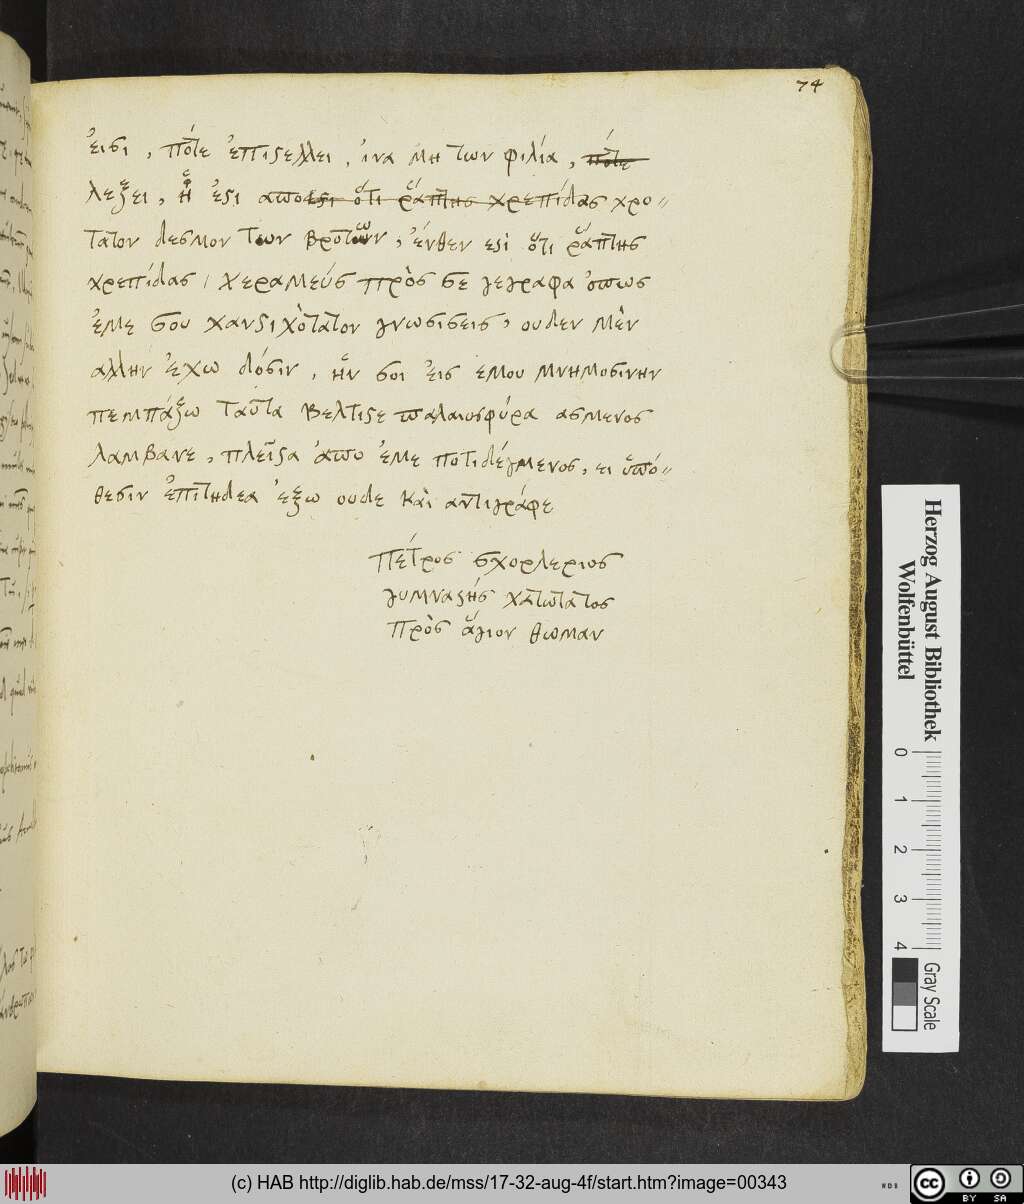 74
ἐισι, πότε ἐπιστελλει, ἱνα μη των φιλία, πότε
λεξει, ἢ ἐστι αποεστι ὅτι ῥάπτης κρεπίδας κρο-
τατον δεσμον των βροτῶων, ἔνθεν εστὶ ὅτι ῥάπτης
κρεπίδας, κεραμεύς πρὸς σε γεγραφα ὁπως
ἐμε σου κανστικὸτατον γνωσισεις, ουδεν μὲν
αλλην ἐχω δόσιν, ἣν σοι ἐις εμου μνημοσίνην
πεμπάξω ταῦτα βελτιστε παλαιοσφύρα ασμενος
λαμβανε, πλεῖστα ἀπο ἐμε ποτιδέγμενος, ει ὑπό-
θεσιν ἐπιτηδεα ἑξω ουδε καὶ αντιγράφε
πέτρος σκορλεριος
γυμναστής κατωτατος
πρὸς ἅγιον θωμαν
Herzog August Bibliothek
Wolfenbüttel
0 1 2 3 4
Gray Scale
(c) HAB http://diglib.hab.de/mss/17-32-aug-4f/start.htm?image=00343
WDB
cc BY SA